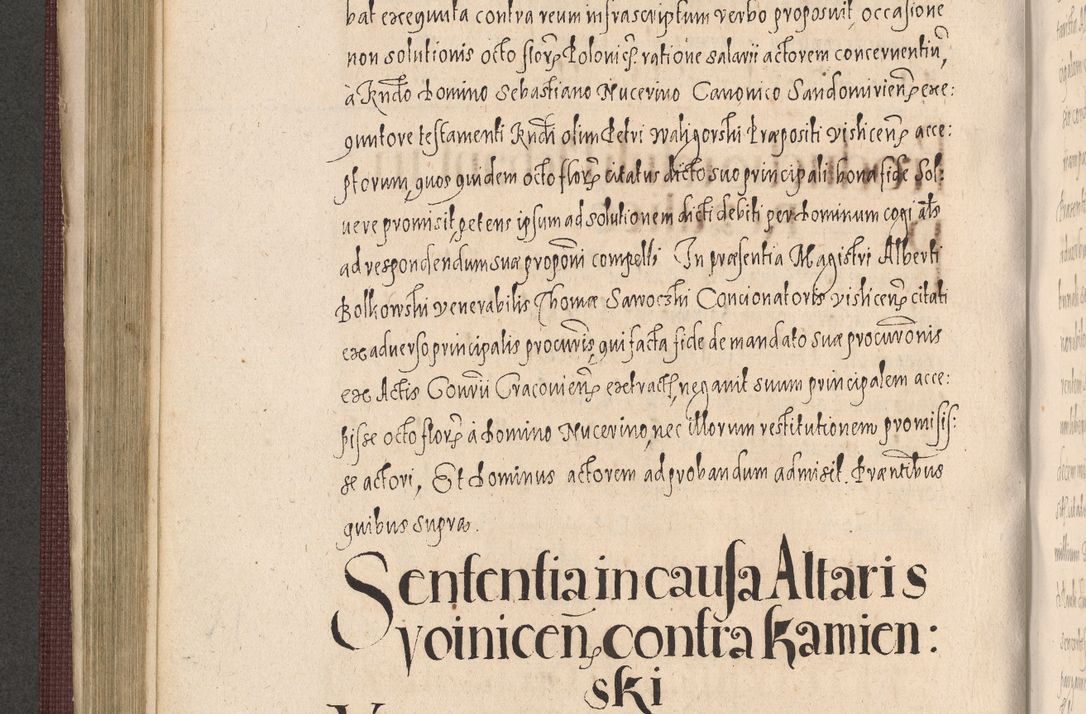 bat exequuta contra reum infrascriptum verbo proposuit, occasione
non solutionis octo floɼ Polonicɼ ratione salarii actorem concernentiũ,
à Rndo Domino Sebastiano Nucerino Canonico Sandomirienɼ exe:
quutore testamenti Rndi olim Petri Waligorski Præpositi vislicenɼ acce:
ptorum, quos quidem octo floɼ citatus dicto suo principali bona fide sol:
vere promisit, petens ipsum ad solutionem dicti debiti per Dominum cogi als
ad respondendum suæ proponi compelli In præsentia Magistri Alberti
Bolkowski venerabilis Thomæ Sawoczki Concionatoris vislicenɼ citati
ex adverso principalis procuris, qui facta fide de mandato suæ procuronis
ex Actis Consrii Cracovienɼ extract, negavit suum principalem acce:
pisse octo floɼ à Domino Nucerino, nec illorum restitutionem promisis:
se actori, Et Dominus actorem ad probandum admisit. Præntibus
quibus supra.
Sententia in causa Altaris
voinicenɼ contra Kamien:
ski